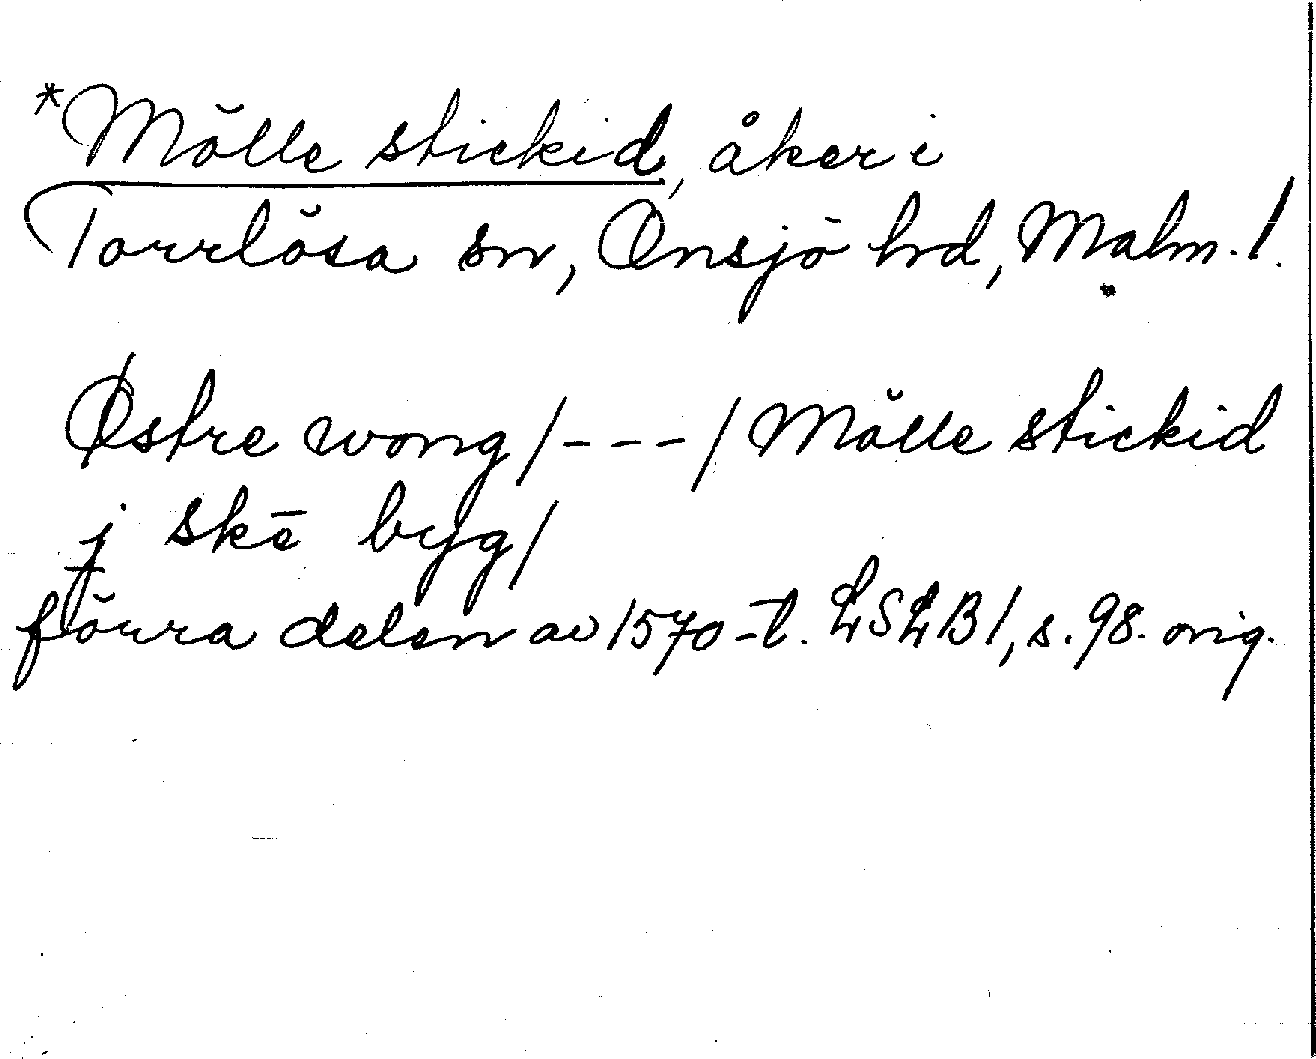 *Mölle stickid, åker i
Torrlösa sn, Onsjö hd, Malm. l.
Østre wong /---/ Mölle stickid
j skē byg/
förra delen av 1570-t. LSLB 1, s. 98. orig.